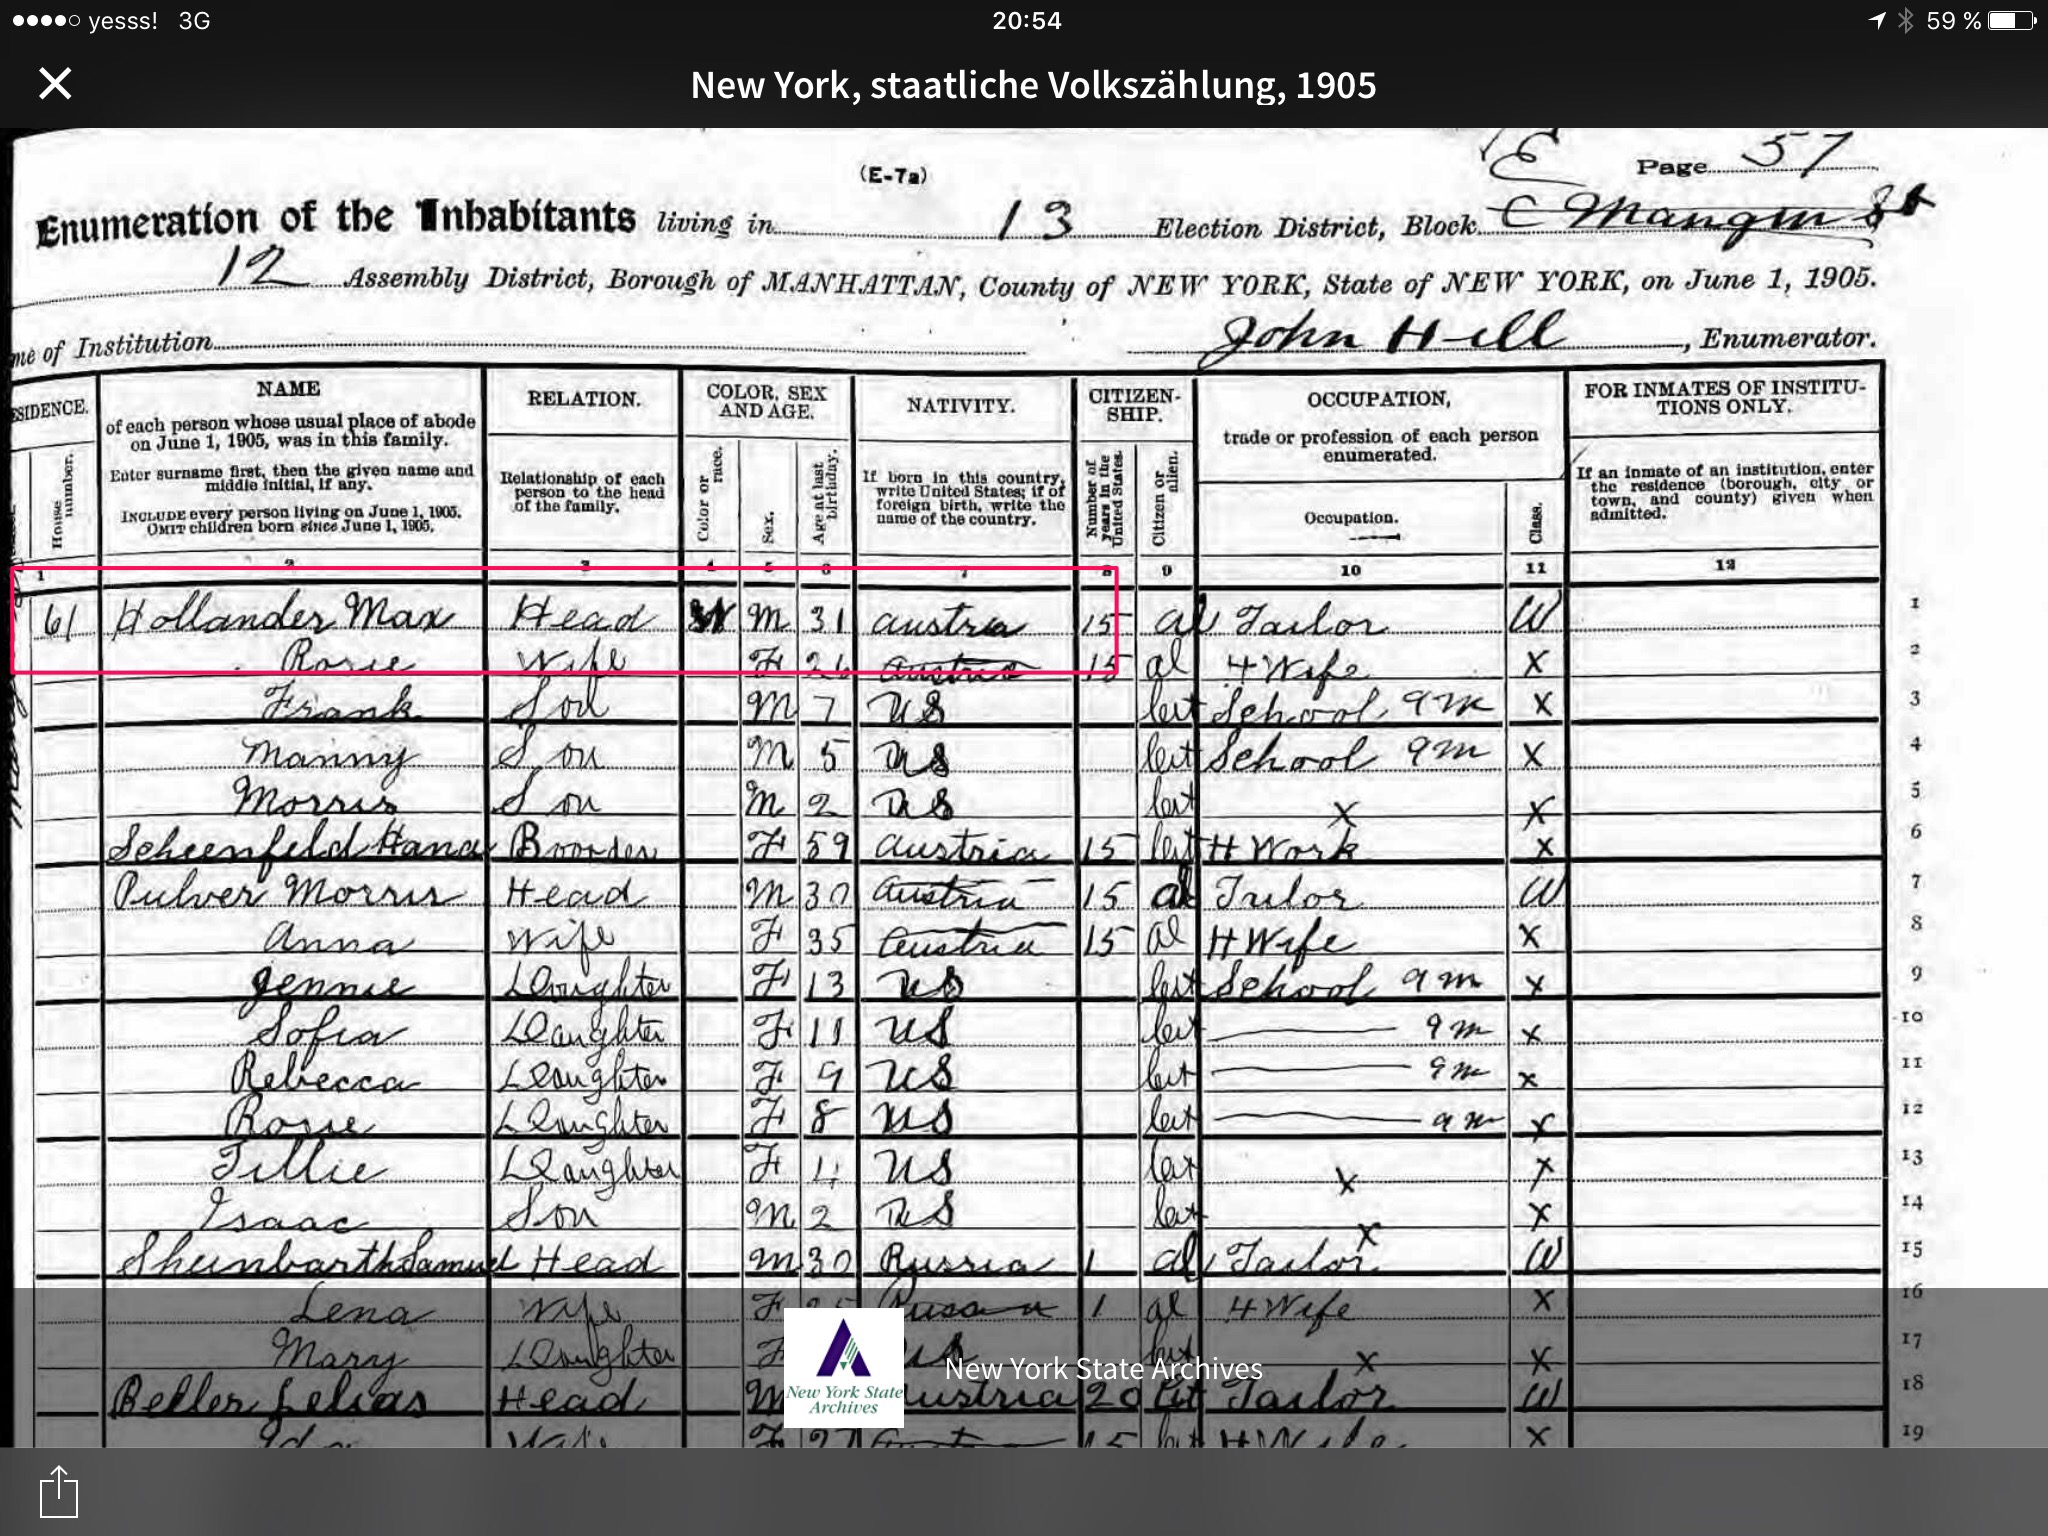 yesss! 3G 20:54 59 %
New York, staatliche Volkszählung, 1905
E Page 57
(E-7a)
Enumeration of the Inhabitants living in 13 Election District, Block C Mangin St
12 Assembly District, Borough of MANHATTAN, County of NEW YORK, State of NEW YORK, on June 1, 1905.
me of Institution John Hill, Enumerator.
SIDENCE. NAME RELATION. COLOR, SEX AND AGE. NATIVITY. CITIZEN-SHIP. OCCUPATION, FOR INMATES OF INSTITU-TIONS ONLY.
House number.
of each person whose usual place of abode
on June 1, 1905, was in this family.
Enter surname first, then the given name and
middle initial, if any.
INCLUDE every person living on June 1, 1905.
OMIT children born since June 1, 1905.
Relationship of each
person to the head
of the family.
Color or race.
Sex.
Age at last birthday.
If born in this country,
write United States; if of
foreign birth, write the
name of the country.
Number of years in the United States.
Citizen or alien.
trade or profession of each person
enumerated.
Occupation.
Class.
If an inmate of an institution, enter
the residence (borough, city or
town, and county) given when
admitted.
1 2 3 4 5 6 7 8 9 10 11 12
61 Hollander Max Head W M 31 Austria 15 al Tailor W 1
Rosie Wife F 26 Austria 15 al H Wife X 2
Frank Son M 7 US School 9 m X 3
Manny Son M 5 US School 9 m X 4
Morris Son M 2 US X X 5
Scheenfeld Hana Boorder F 59 Austria 15 H Work X 6
Pulver Morris Head M 30 Austria 15 al Tailor W 7
Anna Wife F 35 Austria 15 al H Wife X 8
Jennie Daughter F 13 US School 9 m X 9
Sofia Daughter F 11 US 9 m X 10
Rebecca Daughter F 9 US 9 m X 11
Rosie Daughter F 8 US 9 m X 12
Tillie Daughter F 4 US X X 13
Isaac Son M 2 US X X 14
Sheinbarth Samuel Head M 30 Russia 1 al Tailor W 15
Lena Wife F 25 Russia 1 al H Wife X 16
Mary Daughter F US X X 17
Beller Head M Austria 20 Tailor W 18
Wife F 27 Austria 15 H Wife X 19
New York State
Archives
New York State Archives